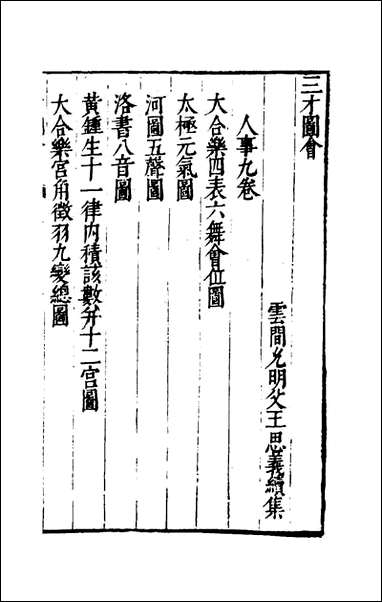 三才圖會
雲間允明父王思義續集
人事九卷
大合樂四表六舞會位圖
太極元氣圖
河圖五聲圖
洛書八音圖
黃鍾生十一律内積該數并十二宫圖
大合樂宫角徵羽九變總圖